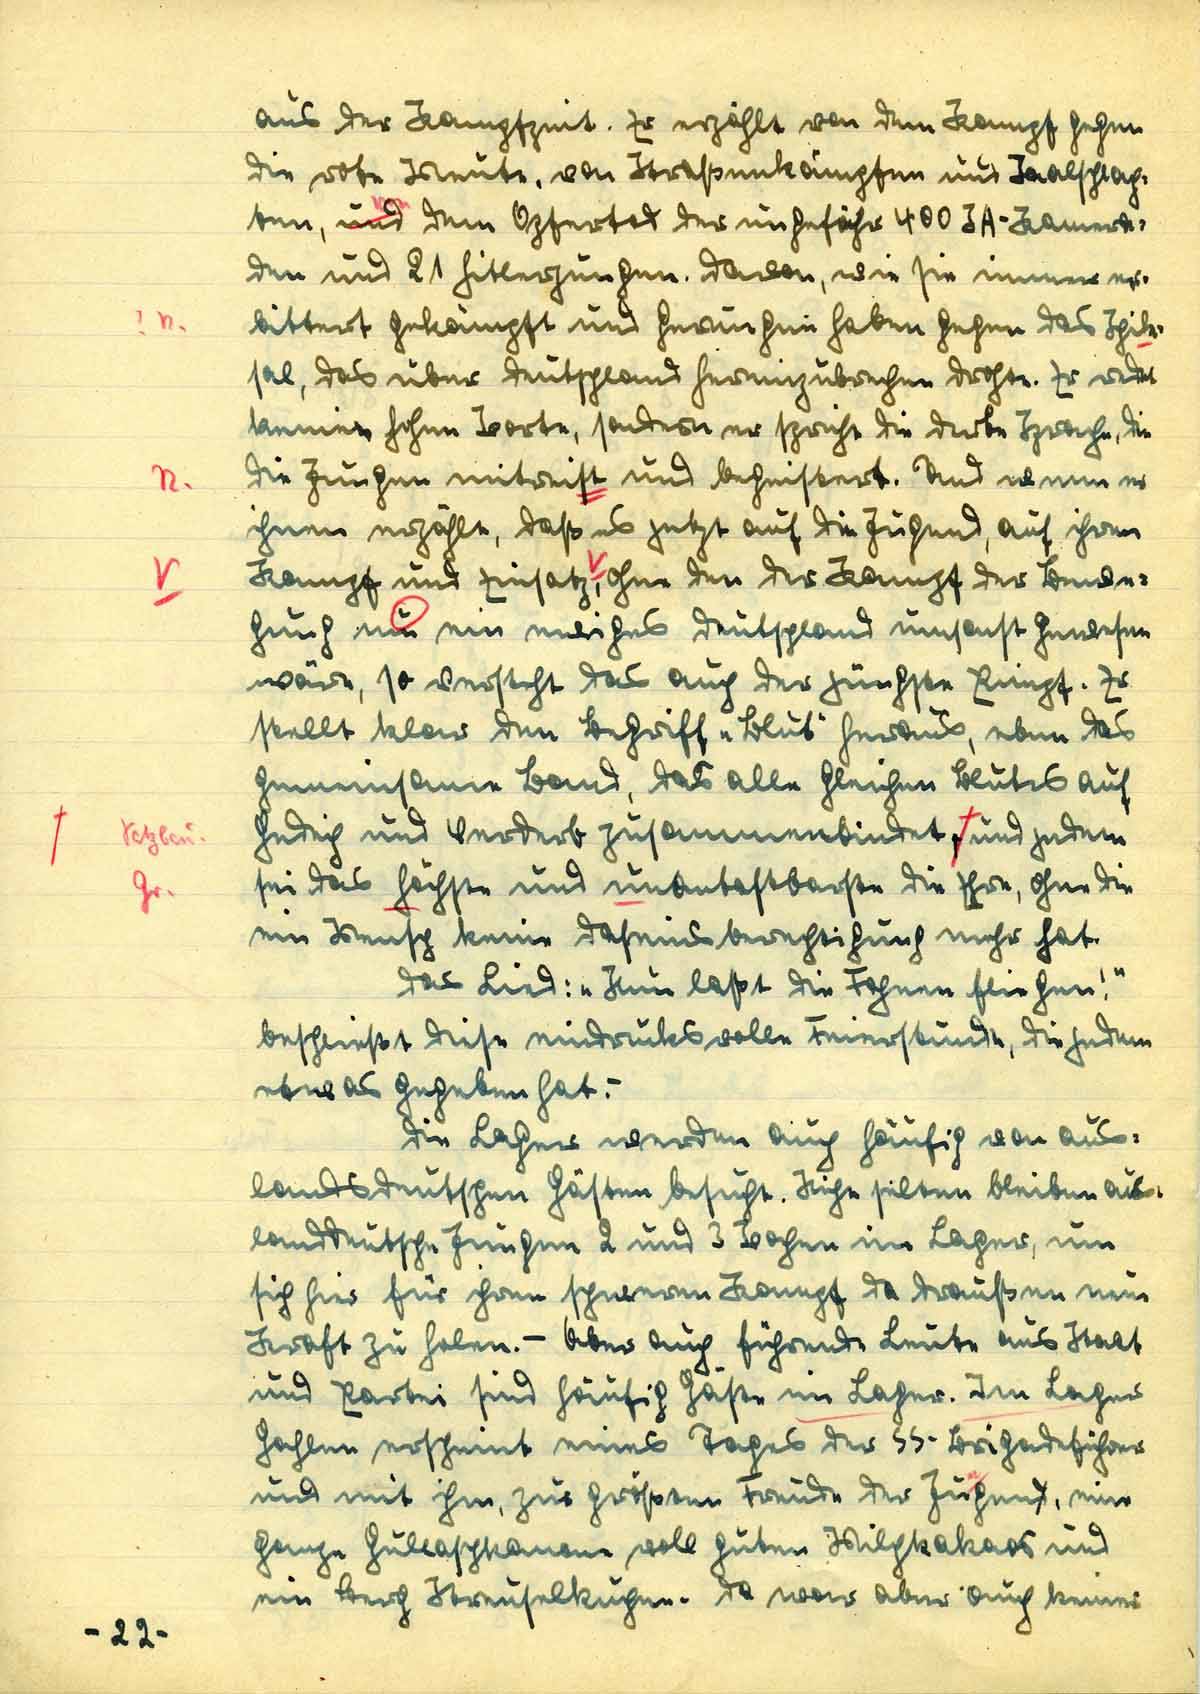 aus der Kampfzeit. Er erzählt von dem Kampf gegen
die rote Meute, von Straßenkämpfen und Saalschlach-
ten, und dem Opfertod der ungefähr 400 SA-Kamera-
den und 21 Hitlerjungen. Davon, wie sie immer er-
! n. bittert gekämpft und gerungen haben gegen das Schik-
sal, das über Deutschland hereinzubrechen drohte. Er redet
keinen hohen Worte, sondern er spricht die derbe Sprache, die
n. die Jungen mitreist und begeistert. Und wenn er
ihnen erzählt, daß es jetzt auf die Jugend, auf ihren
V Kampf und Einsatz, ohne den der Kampf der Bewe-
gung um ein ewiges Deutschland umsonst gewesen
wäre, so versteht das auch der jüngste Pimpf. Er
stellt klar den Begriff „Blut“ heraus, eben das
gemeinsame Band, das alle gleichen Blutes auf
Satzbau. Gedeih und Verderb zusammenbindet, und jedem
Gr. sei das höchste und unantastbarste die Ehre, ohne die
ein Mensch keine Daseinsberechtigung mehr hat.
Das Lied: „Nun laßt die Fahnen fliegen!“
beschließt diese eindruksvolle Feierstunde, die jedem
etwas gegeben hat.-
Die Lager werden auch häufig von aus-
landsdeutschen Gästen besucht. Nicht selten bleiben aus-
landdeutsche Jungen 2 und 3 Wochen im Lager, um
sich hier für ihren schweren Kampf da draußen neue
Kraft zu holen.- Aber auch führende Leute aus Staat
und Partei sind häufig Gäste im Lager. Im Lager
Gohlen erscheint eines Tages der SS-Brigadeführer
und mit ihm, zur größten Freude der Jugend, eine
ganze Gullaschkanone voll guten Milchkakaos und
ein Berg Streuselkuchen. Da war aber auch keiner
-22-